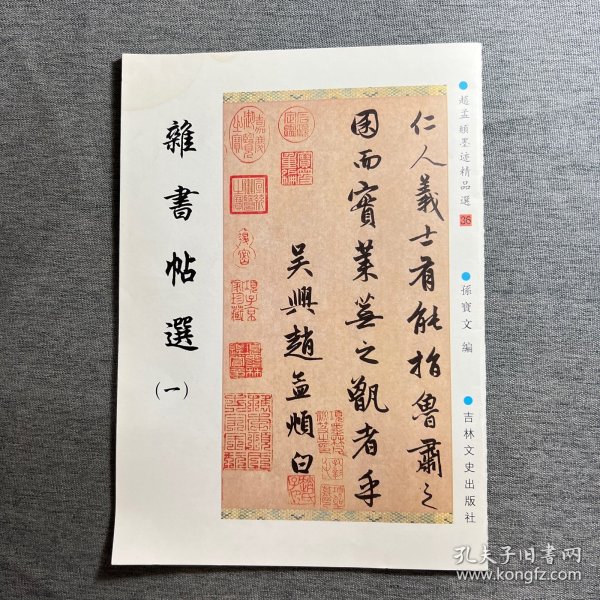 雜書帖選
(一)
仁人義士有能指魯肅之
囷而實萊蕪之甑者乎
吳興趙孟頫白
趙孟頫墨迹精品選
36
孫寶文 編
吉林文史出版社
孔夫子旧书网
www.kongfz.com